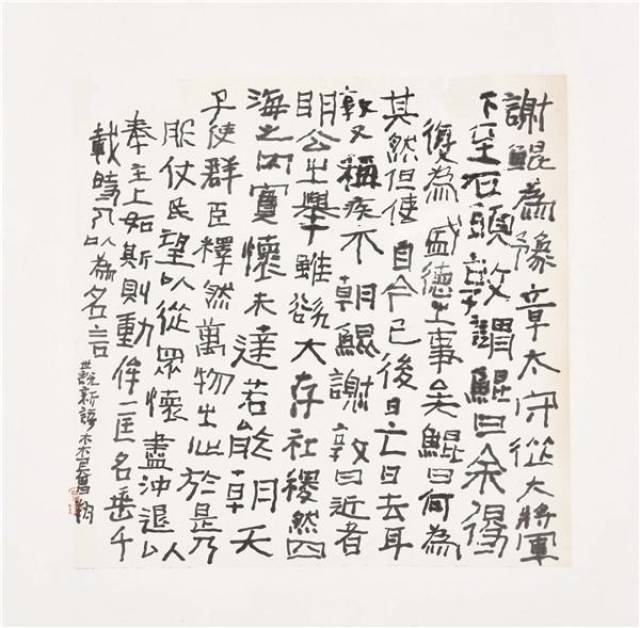 謝鯤為豫章太守從大將軍
下至石頭敦謂鯤曰余得
復為盛德之事矣鯤曰何為
其然但使自今已後日亡日去耳
敦又稱疾不朝鯤謝敦曰近者
明公之舉雖欲大存社稷然四
海之內實懷未達若能朝天
子使群臣釋然萬物之心於是乃
服仗民望以從眾懷盡沖退以
奉主上如斯則動侔一匡名垂千
載時人以為名言
世說新語